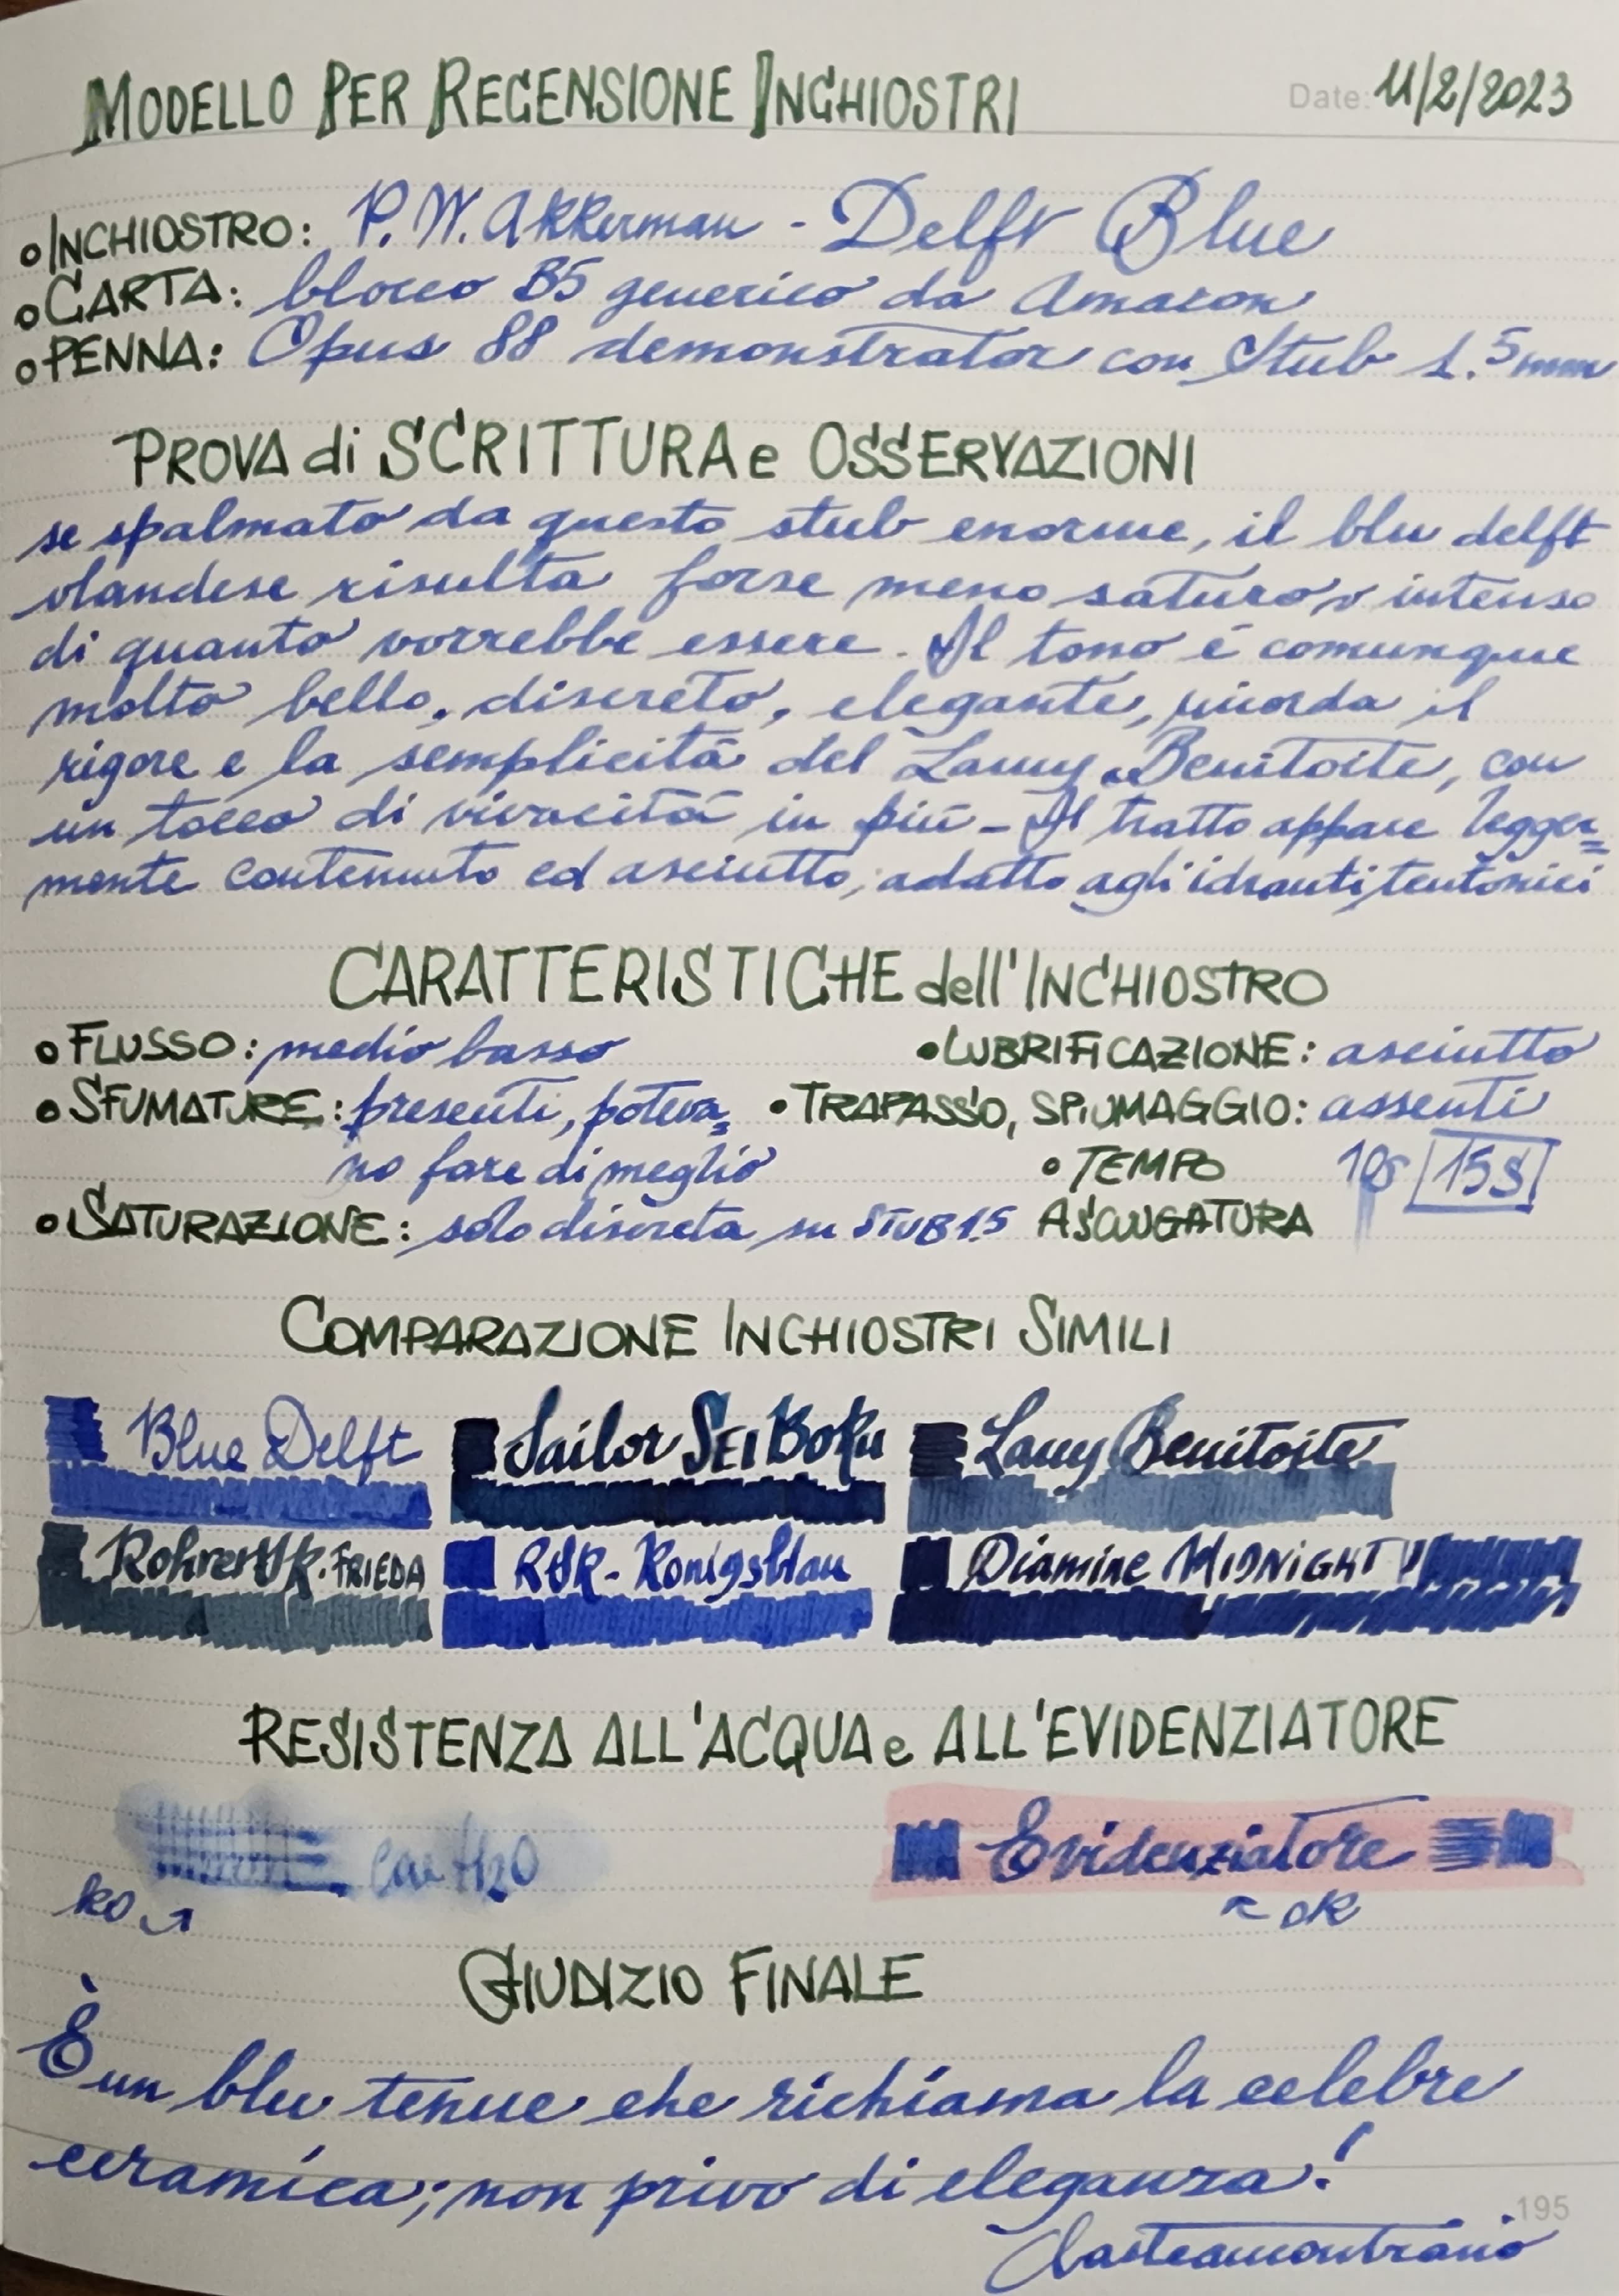 MODELLO PER RECENSIONE INCHIOSTRI
Date: 11/2/2023
INCHIOSTRO: P. W. Akkerman - Delft Blue
CARTA: blocco B5 generico da Amazon
PENNA: Opus 88 demonstrator con Stub 1.5 mm
PROVA di SCRITTURA e OSSERVAZIONI
se spalmato da questo stub enorme, il blu delft
olandese risulta forse meno saturo o intenso
di quanto vorrebbe essere. Il tono è comunque
molto bello, discreto, elegante, ricorda il
rigore e la semplicità del Lamy Benitoite, con
un tocco di vivacità in più - Il tratto appare legger=
mente contenuto ed asciutto, adatto agli idranti teutonici
CARATTERISTICHE dell'INCHIOSTRO
FLUSSO: medio basso
LUBRIFICAZIONE: asciutto
SFUMATURE: presenti, poteva=
no fare di meglio
TRAPASSO, SPIUMAGGIO: assenti
TEMPO
ASCIUGATURA
10s 15s
SATURAZIONE: solo discreta su STUB 1.5
COMPARAZIONE INCHIOSTRI SIMILI
Blue Delft
Sailor SEI BOKU
Lamy Benitoite
Rohrer & K. FRIEDA
R&K - Konigsblau
Diamine MIDNIGHT
RESISTENZA ALL'ACQUA e ALL'EVIDENZIATORE
con H2O
Evidenziatore
ko
ok
GIUDIZIO FINALE
È un blu tenue che richiama la celebre
ceramica; non privo di eleganza!
195